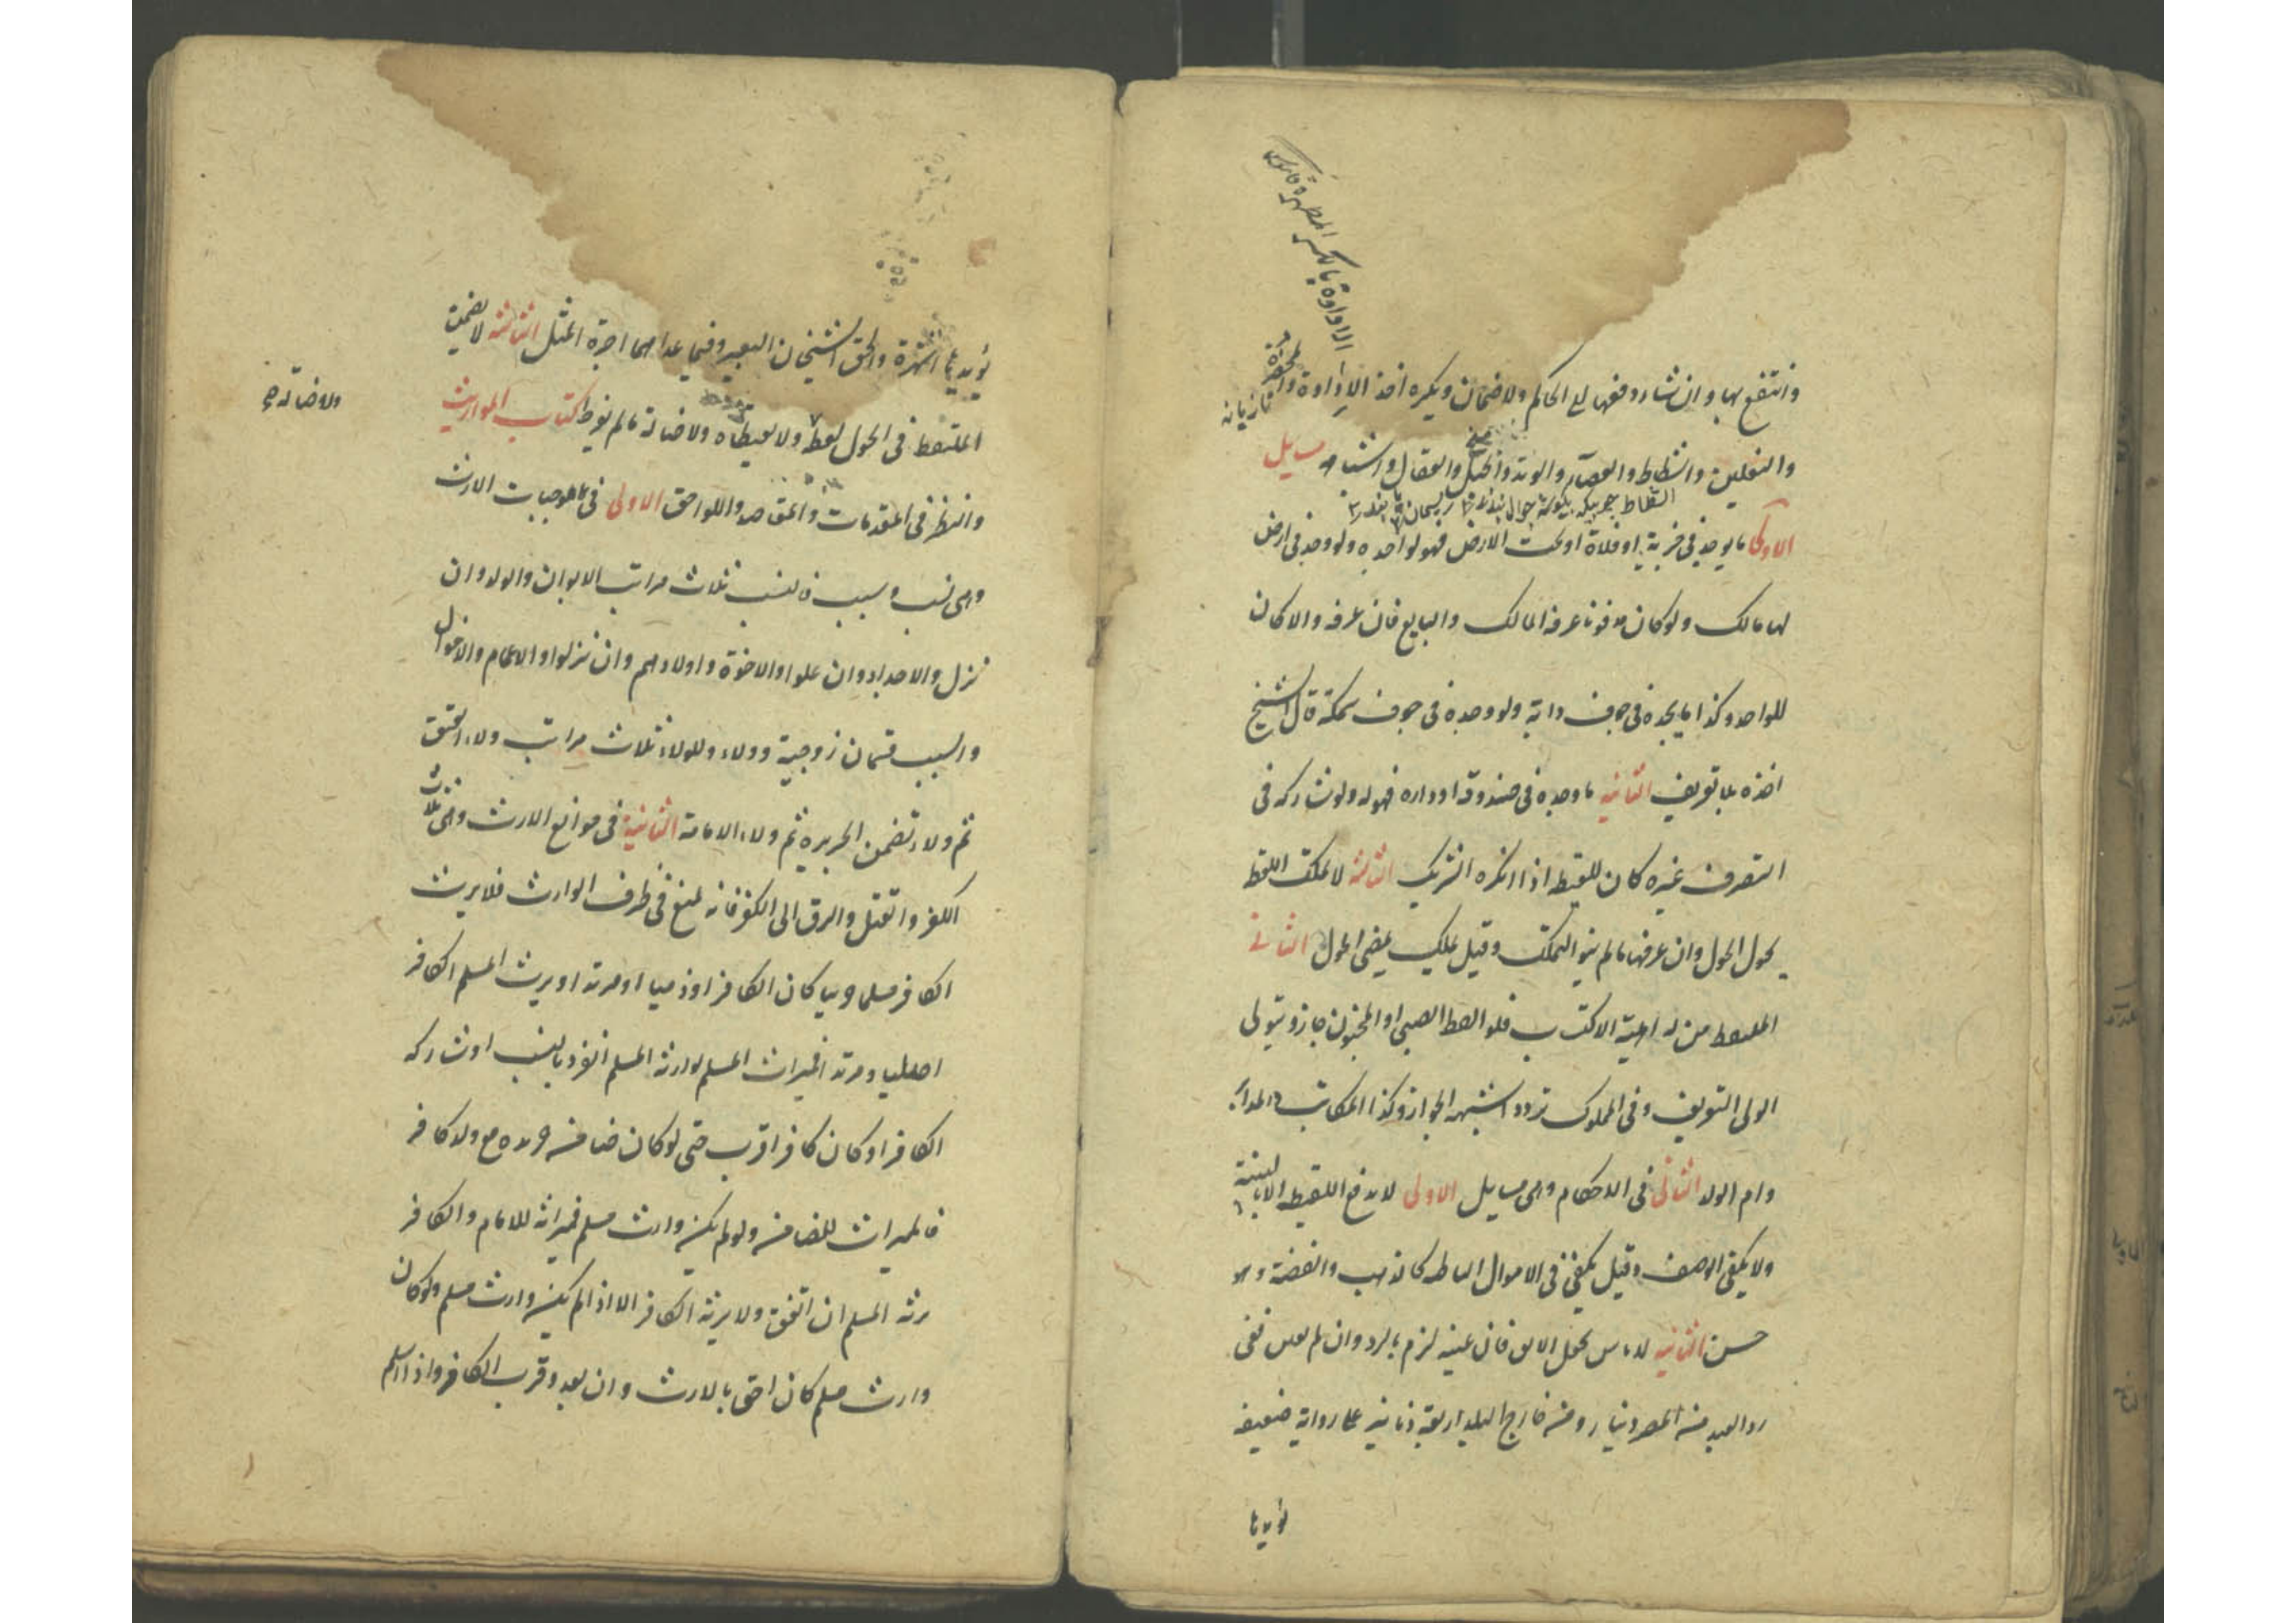 الاداوة بالكسر المطهرة قاموس
وانتفع بها وان شاء دفعها الى الحاكم ولا ضمان ويكره اخذ الاداوة والمخصرة
تازيانه
والنعلين والشظاظ والعصا والوتد والحبل والعقال واشباهه مسايل
الاولى ما يوجد في خربة او فلاة او تحت الارض فهو لواجده ولو وجد في ارض
لها مالك ولو كان مدفونا عرفه المالك والبايع فان عرفه والا كان
للواجد وكذا ما يجده في جوف دابة ولو وجده في جوف سمكة قال الشيخ
اخذه بلا تعريف الثانية ما وجده في صندوقه او داره فهو له ولو شاركه في
التصرف غيره كان كاللقطه اذا انكره الشريك الثالثة لا تملك اللقطه
بحول الحول وان عرفها ما لم ينو التملك وقيل تملك بمضى الحول الثانى
الملتقط من له اهلية الاكتساب فلو التقط الصبى او المجنون جاز ويتولى
الولى التعريف وفى المملوك تردد اشبهه الجواز وكذا المكاتب والمدبر
وام الولد الثالث فى الاحكام وهى مسايل الاولى لا يدفع اللقيطه الا بالبينة
ولا يكفى الوصف وقيل يكفى فى الاموال الباطنه كالذهب والفضة وهو
حسن الثانية لا باس بجعل الابق فان عينه لزم بالرد وان لم يعين ففى
رد العبد من المصر دينار ومن خارج البلد اربعة دنانير على رواية ضعيفه
يؤيدها
يؤيدها الشهرة والحق الشيخان البعير وفيما عداهما اجرة المثل الثالثة لا يضمن
الملتقط فى الحول لقطة ولا لقيطا ولا ضالة ما لم يفرط كتاب المواريث
ولا ضالة صح
والنظر فى المقدمات والمقاصد واللواحق الاولى فى موجبات الارث
وهى نسب وسبب فالنسب ثلاث مراتب الابوان والولد وان
نزل والاجداد وان علوا والاخوة واولادهم وان نزلوا والاعمام والاخوال
والسبب قسمان زوجية وولاء وللولاء ثلاث مراتب ولاء العتق
ثم ولاء تضمن الجريرة ثم ولاء الامامة الثانية فى موانع الارث وهى ثلاث
الكفر والقتل والرق اما الكفر فانه يمنع فى طرف الوارث فلا يرث
الكافر مسلما حربيا كان الكافر او ذميا او مرتدا ويرث المسلم الكافر
اصليا ومرتدا فميراث المسلم لوارثه المسلم انفرد بالنسب او شاركه
الكافر او كان كافرا اقرب حتى لو كان ضامن جريرة مع ولد كافر
فالميراث للضامن ولو لم يكن وارث مسلم فميراثه للامام والكافر
يرثه المسلم ان اتفق ولا يرثه الكافر الا اذا لم يكن وارث مسلم ولو كان
وارث مسلم كان احق بالارث وان بعد وقرب الكافر واذا اسلم